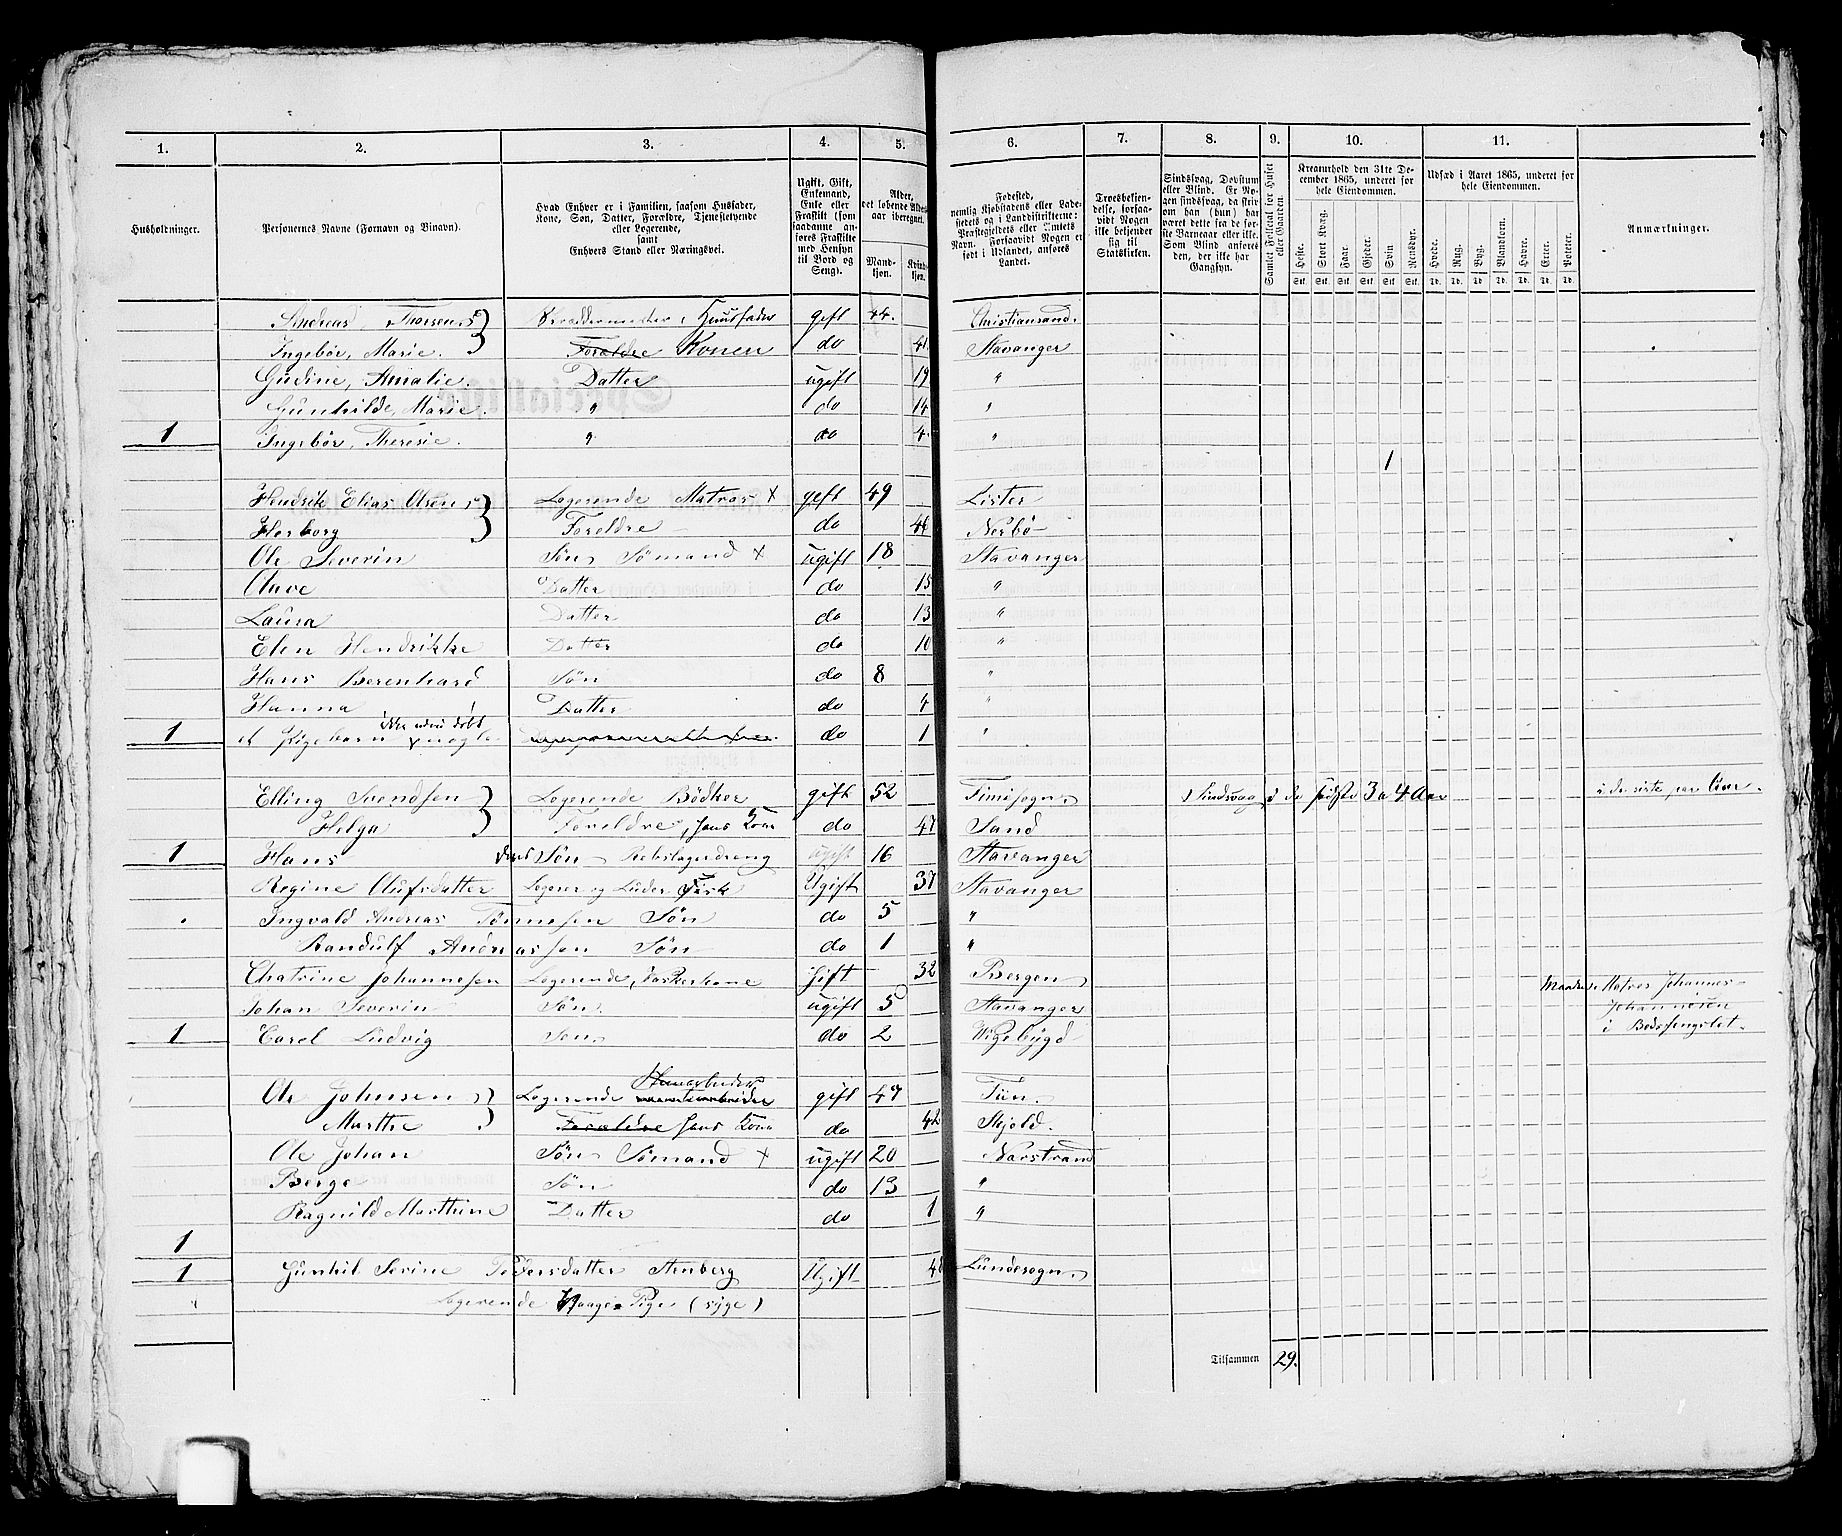 1. 2. 3. 4. 5. 6. 7. 8. 9. 10. 11.
Husholdninger.
Personernes Navne (Fornavn og Binavn).
Hvad Enhver er i Familien, saasom Husfader,
Kone, Søn, Datter, Forældre, Tjenestetyende
eller Logerende,
samt
Enhvers Stand eller Næringsvei.
Ugift, Gift,
Enkemand,
Enke eller
Fraskilt (som
saadanne an-
føres Fraskilte
med Hensyn
til Bord og
Seng).
Alder,
det løbende Alders-
aar iberegnet.
Mand-
kjøn.
Kvind-
kjøn.
Fødested,
nemlig Kjøbstadens eller Lade-
stedets og i Landdistrikterne:
Præstegjeldets eller Amtets
Navn. Forsaavidt Nogen er
født i Udlandet, anføres
Landet.
Troesbekjen-
delse, forsaa-
vidt Nogen
ikke bekjender
sig til
Statskirken.
Sindssvag, Døvstum
eller Blind. Er No-
gen sindssvag, da skriv
om han (hun) har
været dette fra de før-
ste Barneaar eller ikke.
Som Blind anføres
den, der ikke har
Gangsyn.
Samlet Folketal for Huset
eller Gaarden.
Kreaturhold den 31te De-
cember 1865, underet for
hele Eiendommen.
Heste. Stort Kvæg. Faar. Gjeder. Svin Rensdyr.
Stk. Stk. Stk. Stk. Stk. Stk.
Udsæd i Aaret 1865, underet for
hele Eiendommen.
Hvede. Rug. Byg. Blandkorn. Havre. Erter. Poteter.
Td. Td. Td. Td. Td. Td. Td.
Anmærkninger.
Andreas Thorsen Husfader gift 44. Christiansand.
Ingebør, Marie. Forældre Konen do 41. Stavanger
Gudine, Amalie. Datter ugift 19 "
Gunhilde, Marie. " do 14 "
1 Ingebør, Theresie. " do 4 "
1
Hendrik Elias Olsen Logerende Matros x gift 49 Lister
Herborg Foreldre do 44 Nerbø
Ole Severin Søn Sømand x ugift 18 Stavanger
Datter do 15 "
Laura Datter do 13 "
Elen Hendrikke Datter do 10 "
Hans Berenhard Søn do 8 "
Hanna Datter do 4 "
ikke døbt
1 et Pigebarn do 1 "
Elling Svendsen Logerende Bødker gift 52 Timesogn Sindsvag i de sidste 3 a 4 Aar i de siste par Aar.
Helga Foreldre, hans Kone do 47 Sand
1 Hans deres Søn Rebslagerdreng ugift 16 Stavanger
Regine Olufsdatter Logerer Ugift 37 Stavanger
Ingvald Andreas Tønnesen Søn do 5 "
Randulf Andreassen Søn do 1 "
Chatrine Johannesen Logerende, Vaskerkone gift 32 Bergen Matros Johannes
Johan Severin Søn ugift 5 Stavanger Johannesen
1 Carel Ludvig Søn do 2 i Bodsfengslet.
Ole Johnsen Logerende gift 47
Marthe Foreldre hans Kone do 42 Skjold.
Ole Johan Søn Sømand x ugift 20 Narstrand
Berge Søn do 13 "
Ragnild Marthine Datter do 1 "
1
1 Gunhil Serine Pedersdatter Ugift Lundesogn.
" Logerende Pige (syge)
Tilsammen 29.